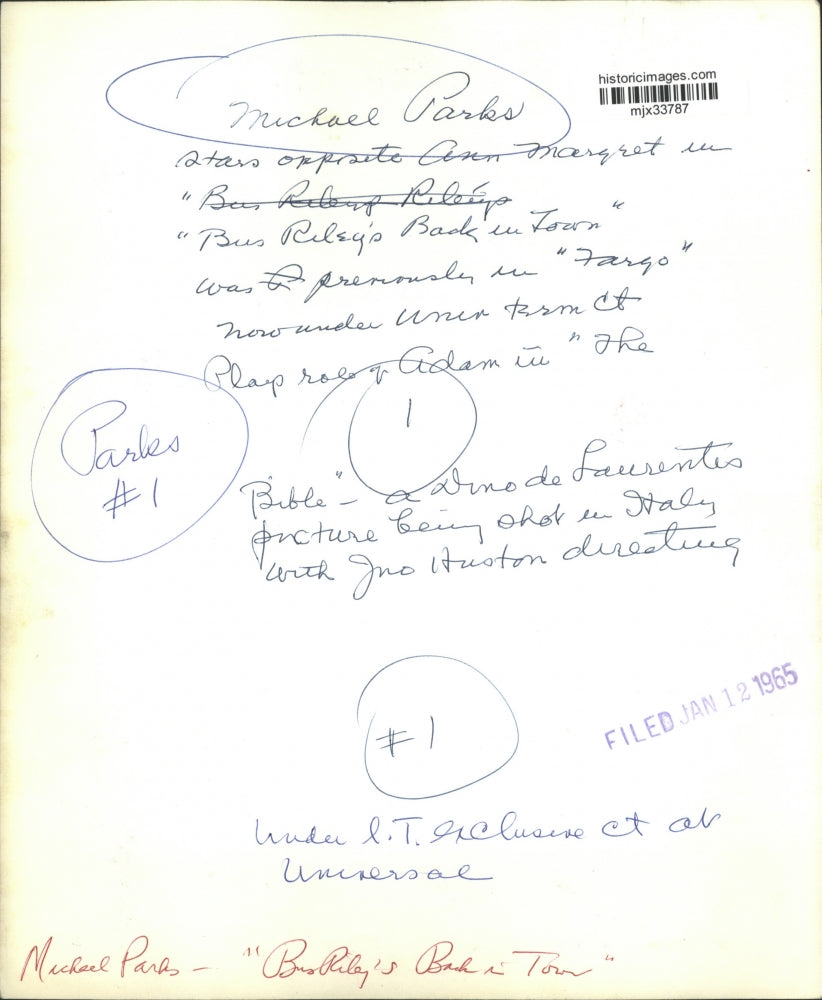 historicimages.com
mjx33787
Michael Parks
stars opposite Ann Margret in
"Bus Rileys Rileys
"Bus Riley's Back in Town"
was previously in "Fargo"
now under Univ term ct
Plays role of Adam in "The
1
Parks
#1
Bible" - a Dino de Laurentes
picture being shot in Italy
with Jno Huston directing
#1
FILED JAN 12 1965
Under l.T. exclusive ct at
Universal
Michael Parks - "Bus Riley's Back in Town"